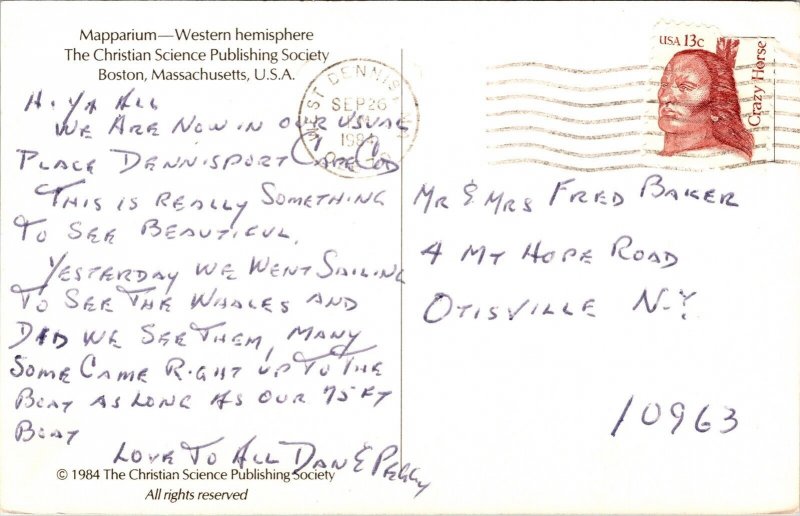 Mapparium—Western hemisphere
The Christian Science Publishing Society
Boston, Massachusetts, U.S.A.
H. YA ALL
WE ARE NOW IN OUR USUAL
PLACE DENNISPORT CAPE COD
THIS IS REALLY SOMETHING
TO SEE BEAUTIFUL.
YESTERDAY WE WENT SAILING
TO SEE THE WHALES AND
DID WE SEE THEM, MANY
SOME CAME RIGHT UP TO THE
BOAT AS LONG AS OUR 75 FT
BOAT
LOVE TO ALL DAN & PEGGY
© 1984 The Christian Science Publishing Society
All rights reserved
WEST DENNIS
SEP 26
1984
USA 13c
Crazy Horse
MR & MRS FRED BAKER
4 MT HOPE ROAD
OTISVILLE N.Y.
10963